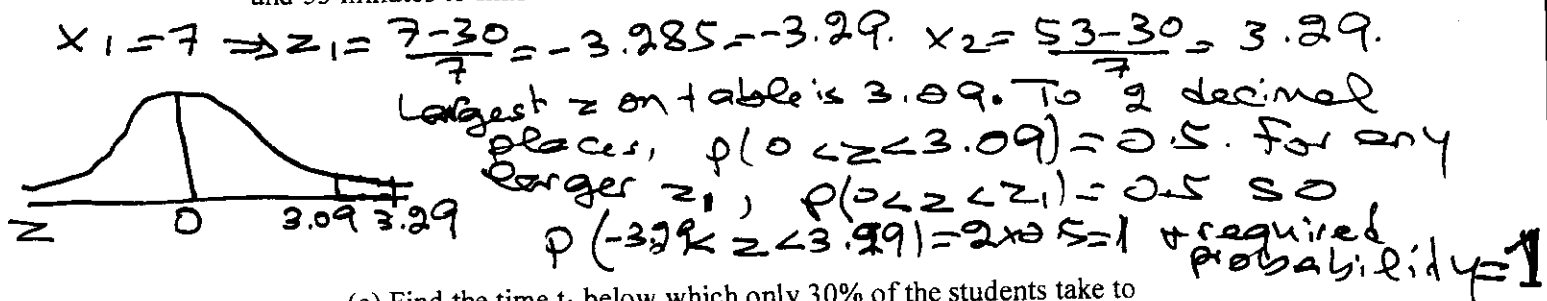 x1=7 ⇒ z1= 7-30/7 = -3.285=-3.29. x2= 53-30/7 = 3.29.
Largest z on table is 3.09. To 2 decimal
places, p(0<z<3.09)=0.5. For any
larger z1, p(0<z<z1)=0.5 so
z 0 3.09 3.29
p(-3.29<z<3.29)=2x0.5=1 & required
probability=1
(c) Find the time t, below which only 30% of the students take to